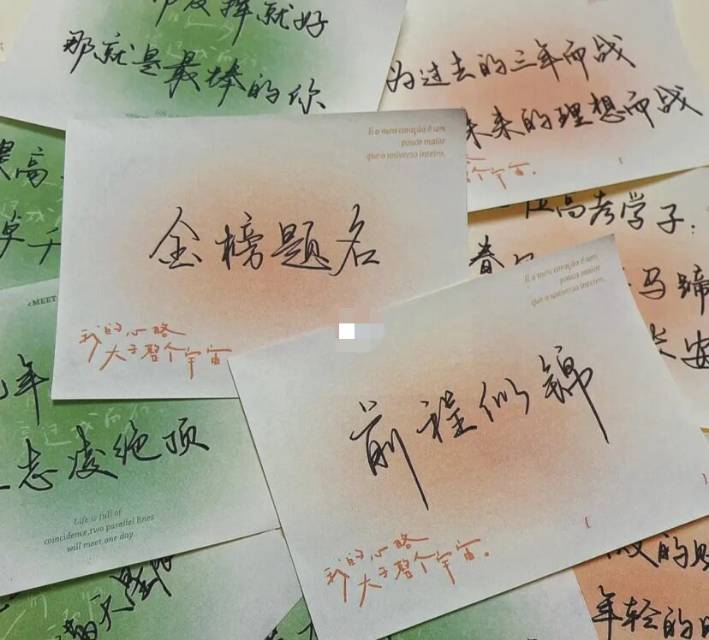 那就是最棒的你
为过去的三年而战
未来的理想而战
E o meu coração é um
pouco maior
que o universo inteiro.
金榜题名
我的心略
大于整个宇宙
高考学子.
马蹄
E o meu coração é um
pouco maior
que o universo inteiro.
前程似锦
我的心略
大于整个宇宙.
<MEET
年
志凌绝顶
Life is full of
coincidence,two parallel lines
will meet one day.
年轻的